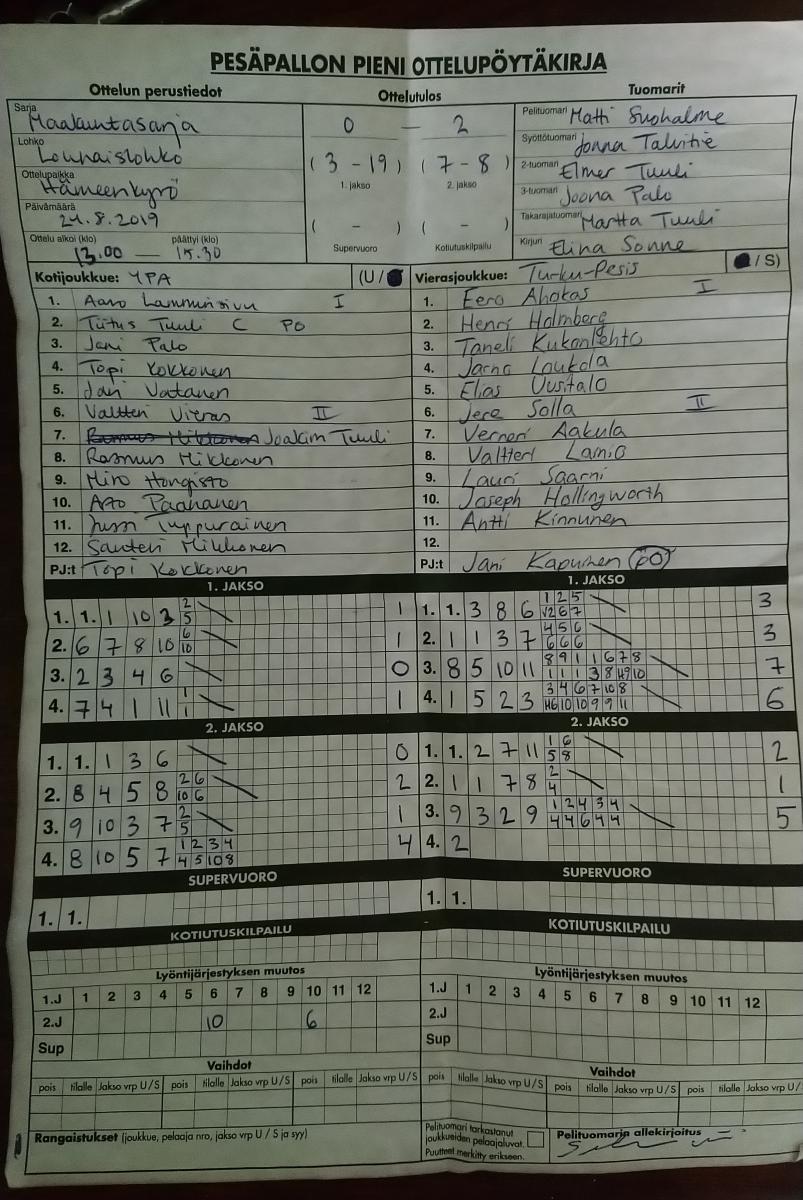 PESÄPALLON PIENI OTTELUPÖYTÄKIRJA
Ottelun perustiedot Ottelutulos Tuomarit
Sarja Maakuntasarja
Lohko Lounaislohko
Ottelupaikka Hämeenkyrö
Päivämäärä 24.8.2019
Ottelu alkoi (klo) päättyi (klo)
13.00 — 15.30
0 — 2
(3-19) (7-8)
1. jakso 2. jakso
( - ) ( - )
Supervuoro Kotiutuskilpailu
Pelituomari Matti Suohalme
Syöttötuomari Jonna Talvitie
2-tuomari Elmer Tuuli
3-tuomari Joona Palo
Takarajatuomari Martta Tuuli
Kirjuri Elina Sonne
Kotijoukkue: YPA (U/
1. Aaro Lamminsivu I
2. Tiitus Tuuli C PO
3. Jani Palo
4. Topi Kokkonen
5. Jari Vatanen
6. Valtteri Vieras II
7. Joakim Tuuli
8. Rasmus Mikkonen
9. Miro Hongisto
10. Arto Paananen
11. Jussi Tuppurainen
12. Santeri Mikkonen
PJ:t Topi Kokkonen
Vierasjoukkue: Turku-Pesis / S)
1. Eero Ahokas I
2. Henri Holmberg
3. Taneli Kukonlehto
4. Jarno Laukola
5. Elias Uusitalo
6. Jere Solla II
7. Verneri Aakula
8. Valtteri Lamio
9. Lauri Saarni
10. Joseph Hollingworth
11. Antti Kinnunen
12.
PJ:t Jani Kapuinen PO
1. JAKSO 1. JAKSO
1. 1. 1 10 3 2 5 1
2. 6 7 8 10 6 10 1
3. 2 3 4 6 0
4. 7 4 1 11 1 1 1
1. 1. 3 8 6 1 2 5 6 7 3
2. 1 1 3 7 4 5 6 6 6 6 3
3. 8 5 10 11 8 9 1 1 6 7 8 1 1 1 3 8 10 7
4. 1 5 2 3 3 4 6 7 10 8 10 10 9 9 11 6
2. JAKSO 2. JAKSO
1. 1. 1 3 6 0
2. 8 4 5 8 2 6 10 6 2
3. 9 10 3 7 2 5 1
4. 8 10 5 7 1 2 3 4 4 5 10 8 4
1. 1. 2 7 11 1 6 5 8 2
2. 1 1 7 8 2 4 1
3. 9 3 2 9 1 2 4 3 4 4 4 6 4 4 5
4. 2
SUPERVUORO SUPERVUORO
1. 1. 1. 1.
KOTIUTUSKILPAILU KOTIUTUSKILPAILU
Lyöntijärjestyksen muutos Lyöntijärjestyksen muutos
1.J 1 2 3 4 5 6 7 8 9 10 11 12 1.J 1 2 3 4 5 6 7 8 9 10 11 12
2.J 10 6 2.J
Sup Sup
Vaihdot Vaihdot
pois tilalle Jakso vrp U/S pois tilalle Jakso vrp U/S pois tilalle Jakso vrp U/S pois tilalle Jakso vrp U/S pois tilalle Jakso vrp U/S pois tilalle Jakso vrp U/
Rangaistukset (joukkue, pelaaja nro, jakso vrp U / S ja syy)
Pelituomari tarkastanut
joukkueiden pelaajaluvat.
Puutteet merkitty erikseen.
Pelituomarin allekirjoitus